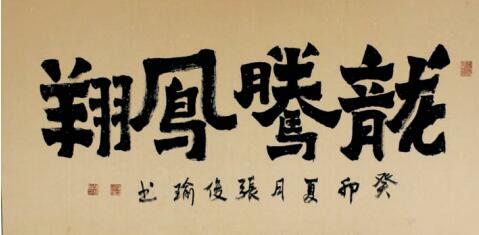 龍騰鳳翔
癸卯夏月張俊瑜书